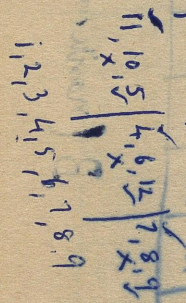 11, 10, 5 | 4, 6, 12 | 7, 8, 9
1, 2, 3, 4, 5, 6, 7, 8, 9